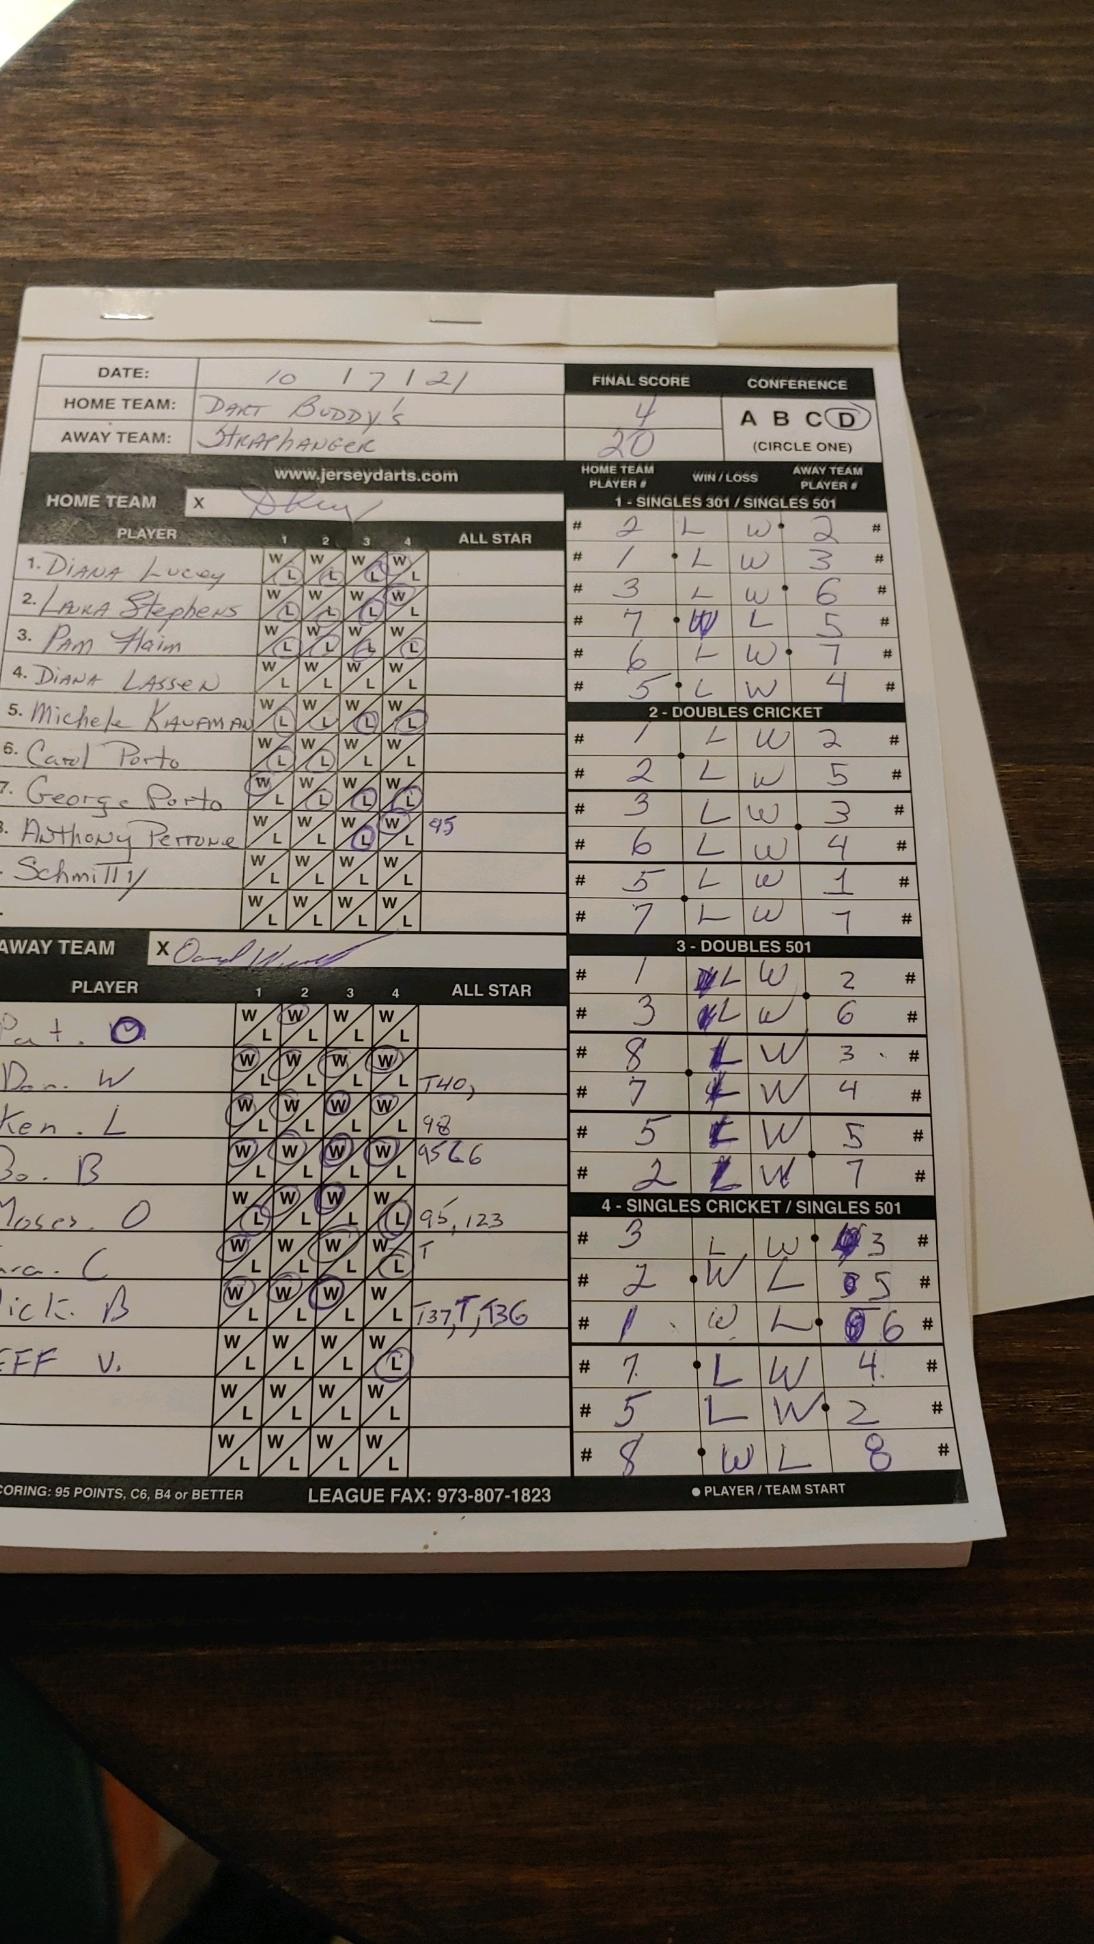 DATE: 10 17 121
FINAL SCORE CONFERENCE
HOME TEAM: DART BUDDY'S 4
A B C D
AWAY TEAM: STRAPHANGER 20
(CIRCLE ONE)
www.jerseydarts.com
HOME TEAM PLAYER # WIN / LOSS AWAY TEAM PLAYER #
HOME TEAM X
PLAYER 1 2 3 4 ALL STAR
1. DIANA Lucey W L W L W L W L
2. LAURA Stephens W L W L W L W L
3. PAM Haim W L W L W L W L
4. DIANA LASSEN W L W L W L W L
5. Michele KAUFMAN W L W L W L W L
6. Carol Porto W L W L W L W L
7. George Porto W L W L W L W L
8. Anthony Perrone W L W L W L W L 95
. Schmitty W L W L W L W L
. W L W L W L W L
AWAY TEAM X
PLAYER 1 2 3 4 ALL STAR
Pat. O W L W L W L W L
Dan. W W L W L W L W L T40,
Ken. L W L W L W L W L 98
Bo. B W L W L W L W L 95 C6
Moses. O W L W L W L W L 95, 123
ara. C W L W L W L W L T
ick. B W L W L W L W L T37, T, T36
EFF V. W L W L W L W L
W L W L W L W L
W L W L W L W L
1 - SINGLES 301 / SINGLES 501
# 2 L W 2 #
# 1 L W 3 #
# 3 L W 6 #
# 7 W L 5 #
# 6 L W 7 #
# 5 L W 4 #
2 - DOUBLES CRICKET
# 1 L W 2 #
# 2 L W 5 #
# 3 L W 3 #
# 6 L W 4 #
# 5 L W 1 #
# 7 L W 7 #
3 - DOUBLES 501
# 1 L W 2 #
# 3 L W 6 #
# 8 L W 3 #
# 7 L W 4 #
# 5 L W 5 #
# 2 L W 7 #
4 - SINGLES CRICKET / SINGLES 501
# 3 L W 3 #
# 2 W L 5 #
# 1 W L 6 #
# 7. L W 4. #
# 5 L W 2 #
# 8 W L 8 #
CORING: 95 POINTS, C6, B4 or BETTER LEAGUE FAX: 973-807-1823 ● PLAYER / TEAM START